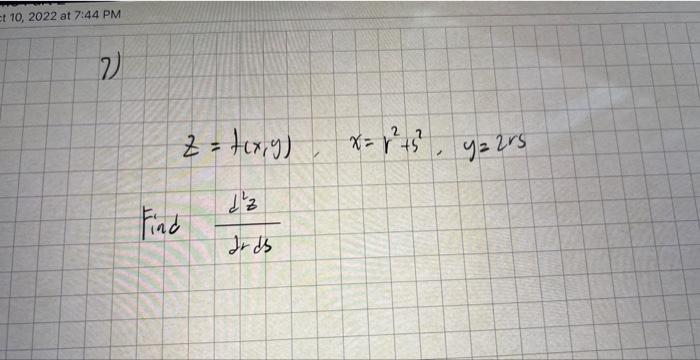 ct 10, 2022 at 7:44 PM
7)
z = f(x,y), x = r²+s², y = 2rs
Find d²z
dr ds